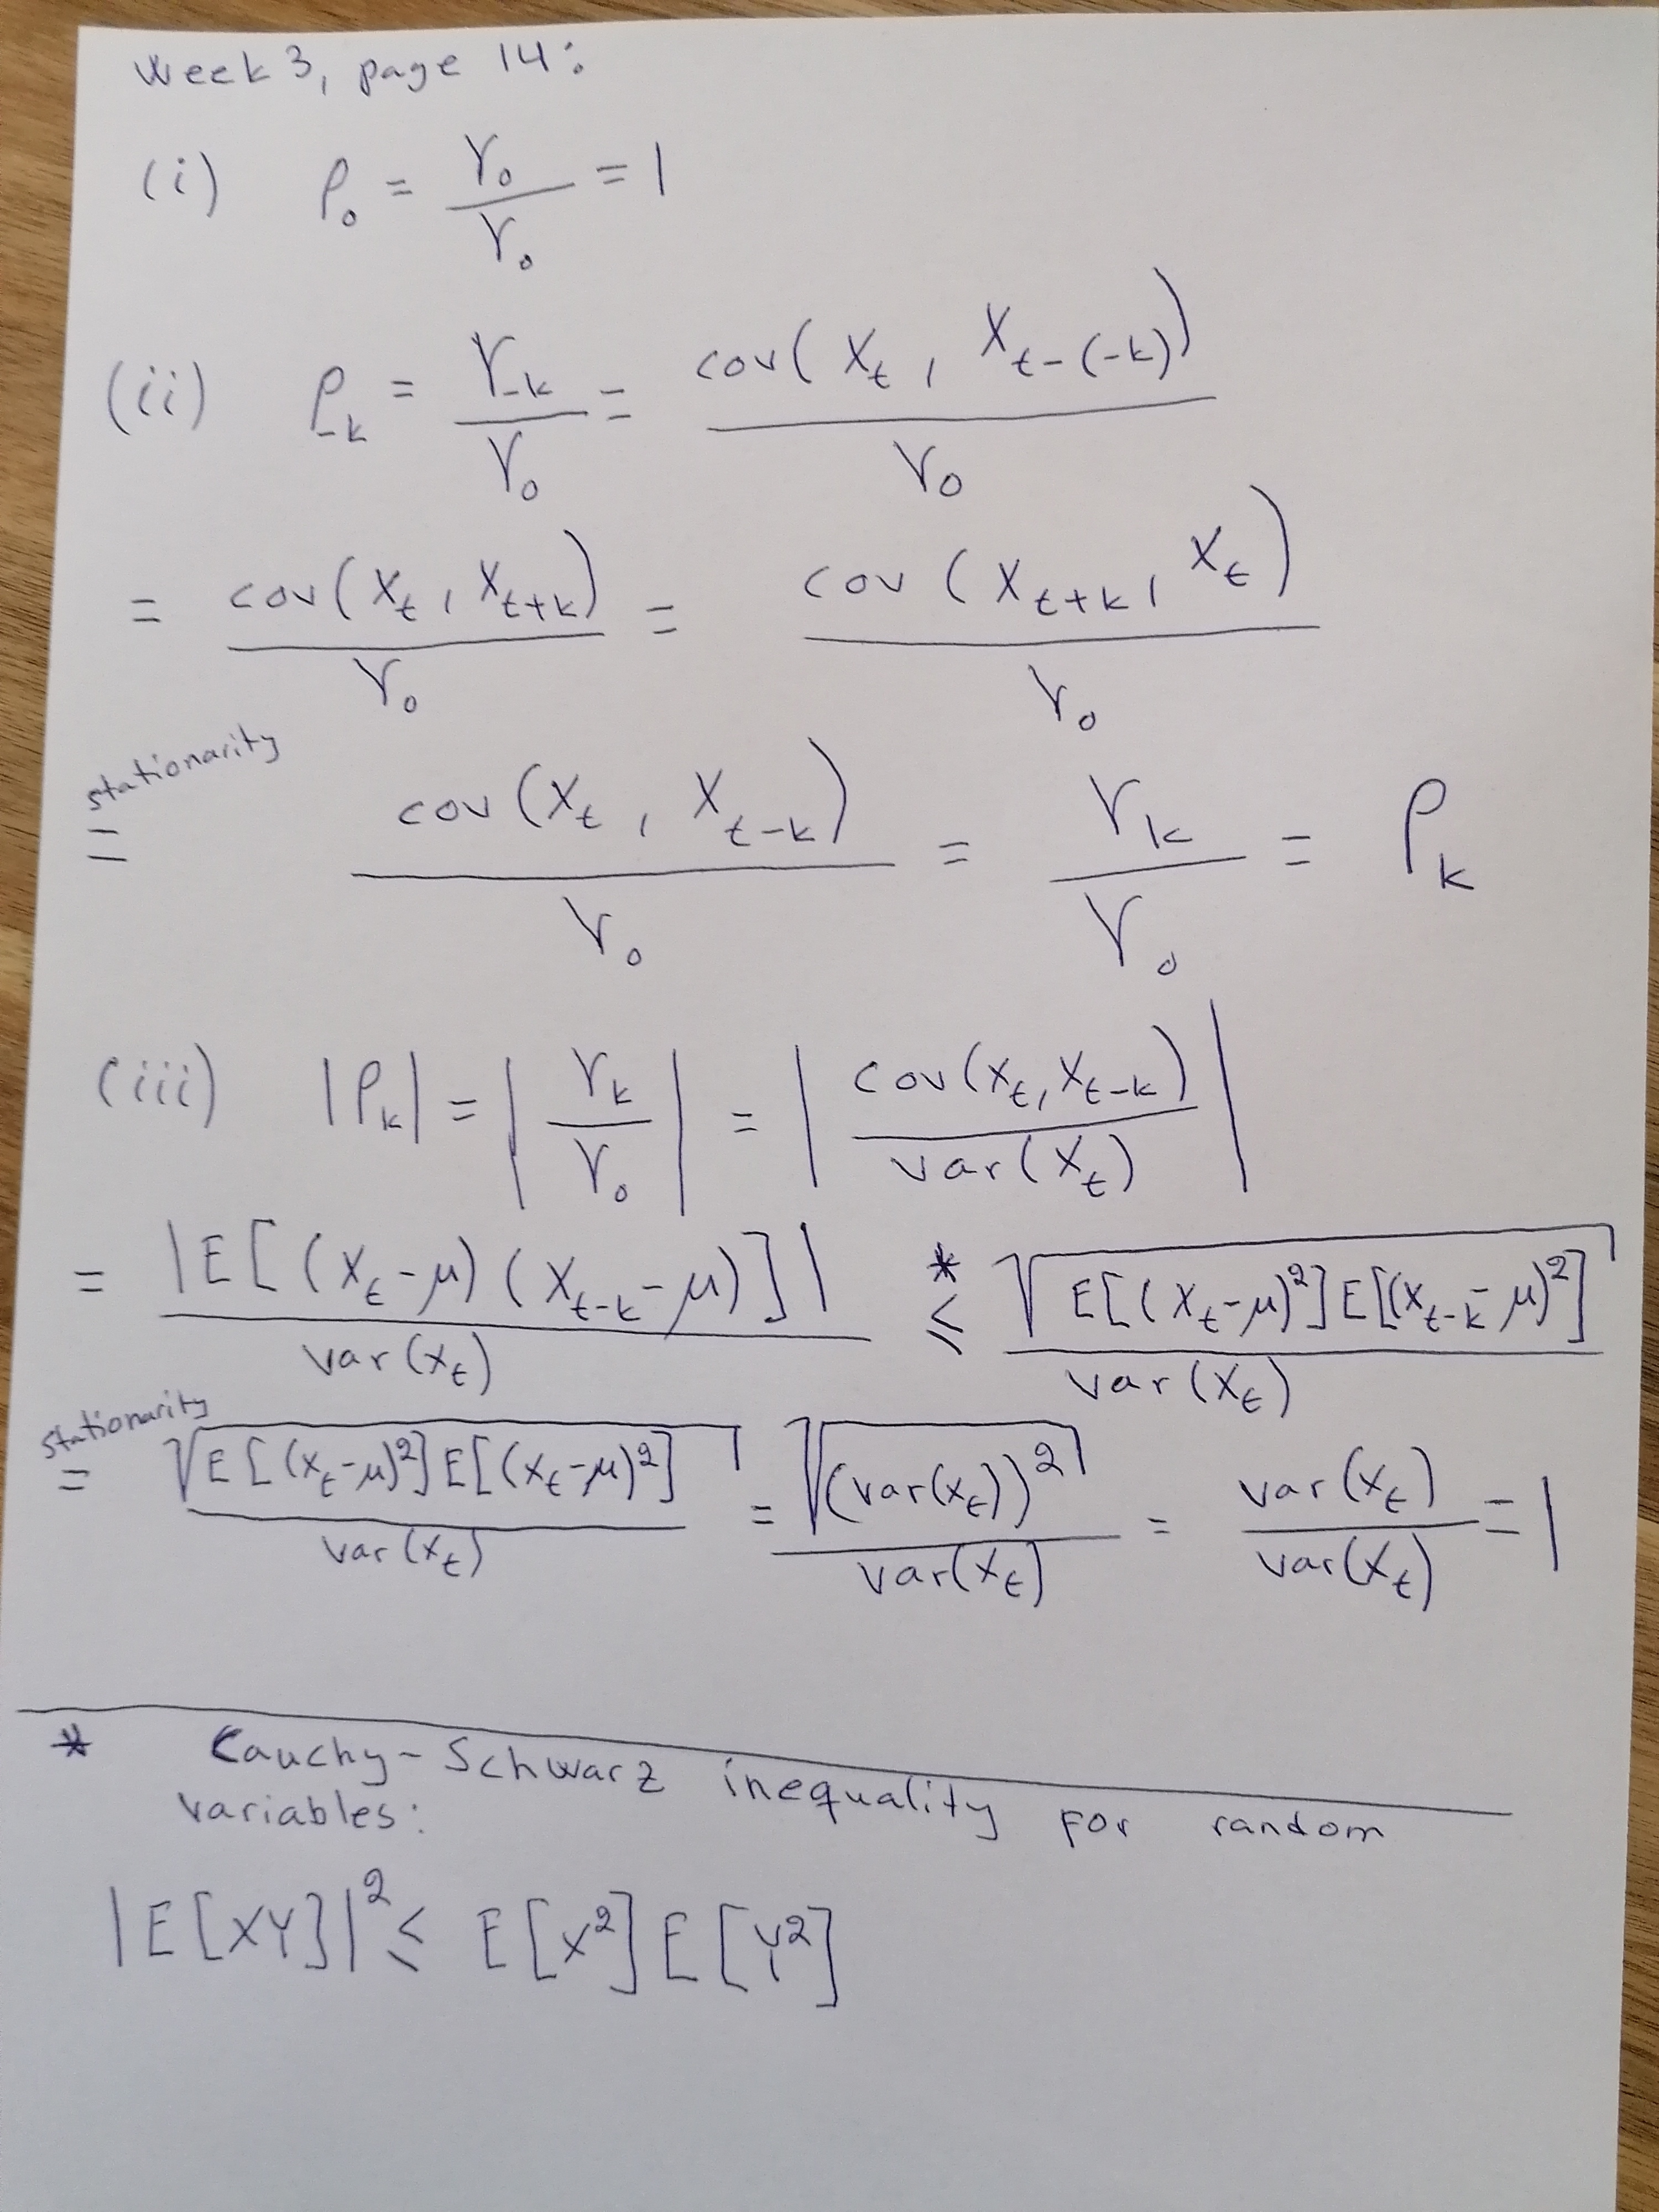 Week 3, page 14:
(i) ρ₀ = γ₀ / γ₀ = 1
(ii) ρ₋ₖ = γ₋ₖ / γ₀ = cov(Xₜ, Xₜ₋₍₋ₖ₎) / γ₀
= cov(Xₜ, Xₜ₊ₖ) / γ₀ = cov(Xₜ₊ₖ, Xₜ) / γ₀
stationarity
= cov(Xₜ, Xₜ₋ₖ) / γ₀ = γₖ / γ₀ = ρₖ
(iii) |ρₖ| = |γₖ / γ₀| = |cov(Xₜ, Xₜ₋ₖ) / var(Xₜ)|
= |E[(Xₜ-μ)(Xₜ₋ₖ-μ)]| / var(Xₜ) ≤* √(E[(Xₜ-μ)²]E[(Xₜ₋ₖ-μ)²]) / var(Xₜ)
stationarity
= √(E[(Xₜ-μ)²]E[(Xₜ-μ)²]) / var(Xₜ) = √((var(Xₜ))²) / var(Xₜ) = var(Xₜ) / var(Xₜ) = 1
* Cauchy-Schwarz inequality for random
variables:
|E[XY]|² ≤ E[X²]E[Y²]